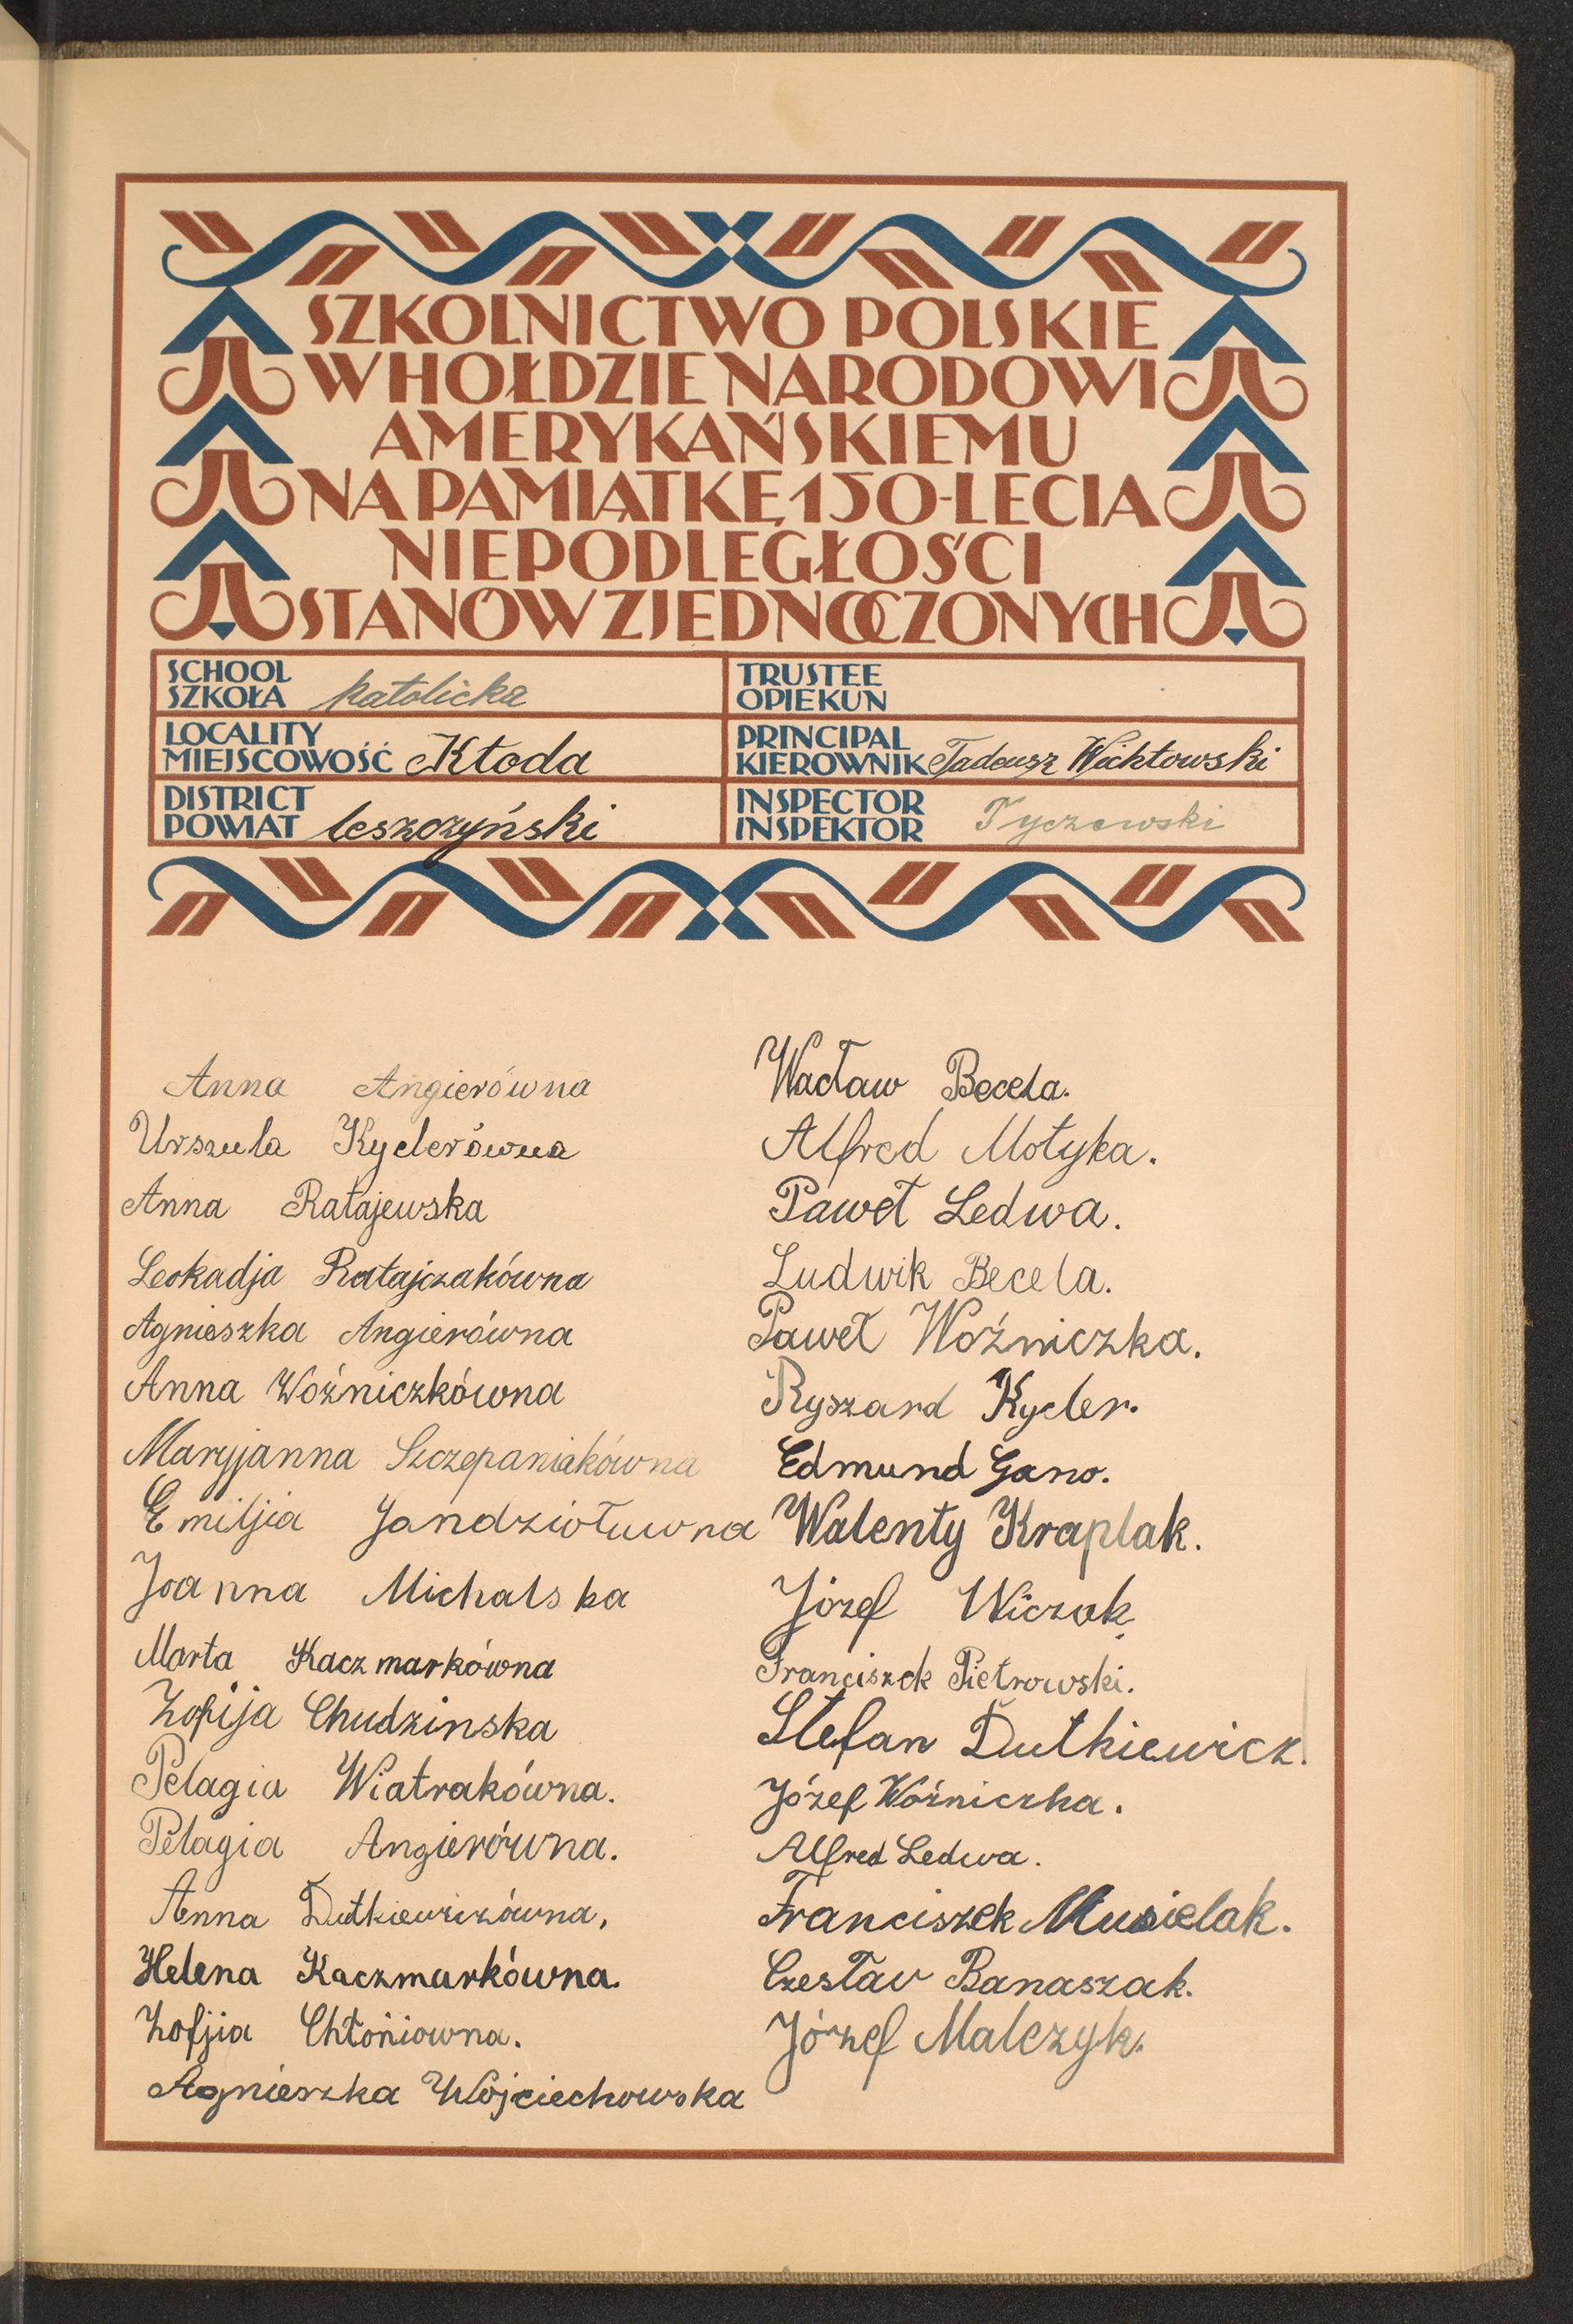 SZKOLNICTWO POLSKIE
W HOŁDZIE NARODOWI
AMERYKAŃSKIEMU
NA PAMIĄTKĘ 150-LECIA
NIEPODLEGŁOŚCI
STANÓW ZJEDNOCZONYCH
SCHOOL
SZKOŁA katolicka
TRUSTEE
OPIEKUN
LOCALITY
MIEJSCOWOŚĆ Kłoda
PRINCIPAL
KIEROWNIK Tadeusz Wichłowski
DISTRICT
POWIAT leszczyński
INSPECTOR
INSPEKTOR Tyczewski
Anna Angierówna
Urszula Kyclerówna
Anna Ratajewska
Leokadja Ratajczakówna
Agnieszka Angierówna
Anna Woźniczkówna
Maryjanna Szczepaniakówna
Emiljia Jandziołuwna
Joanna Michalska
Marta Kaczmarkówna
Zofija Chudzinska
Pelagia Wiatrakówna.
Pelagia Angierówna.
Anna Dutkiewiczówna,
Helena Kaczmarkówna.
Zofjia Chłoniowna.
Agnieszka Wojciechowska
Wacław Becela.
Alfred Motyka.
Paweł Ledwa.
Ludwik Becela.
Paweł Woźniczka.
Ryszard Kycler.
Edmund Gano.
Walenty Kraplak.
Józef Wiczak.
Franciszek Pietrowski.
Stefan Dutkiewicz.
Józef Woźniczka.
Alfred Ledwa.
Franciszek Musielak.
Czesław Banaszak.
Józef Malczyk.